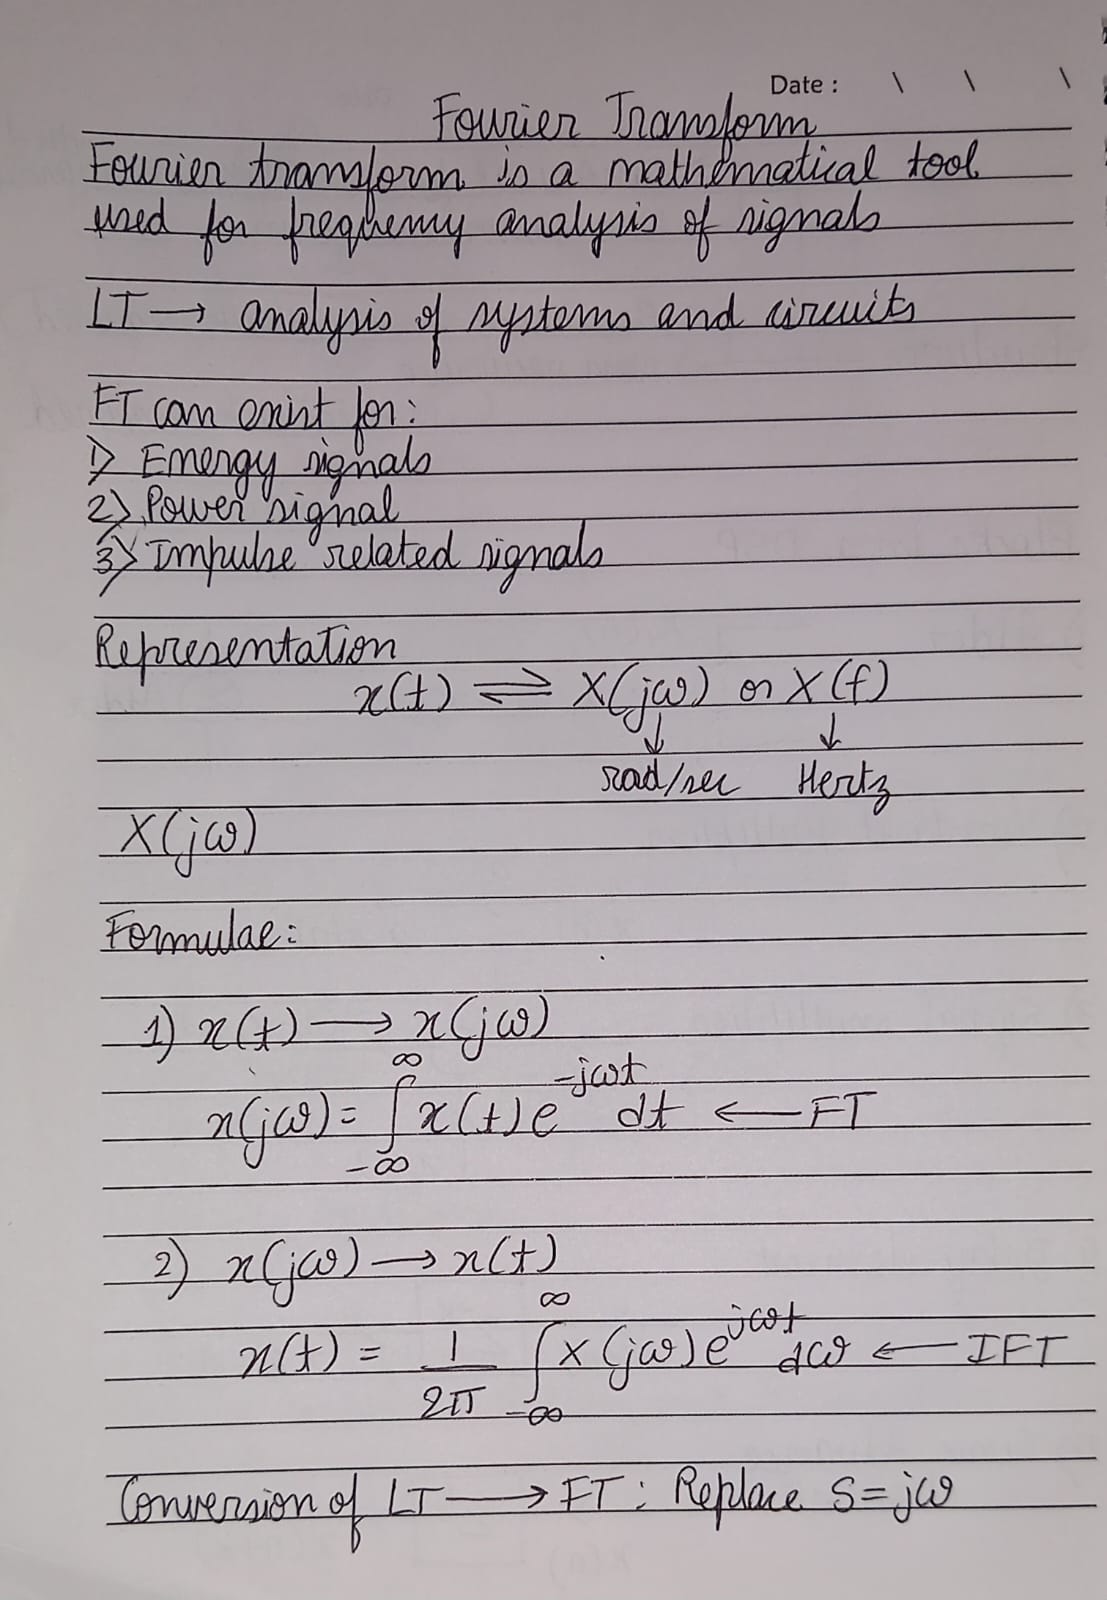 Date : \ \ \
Fourier Transform
Fourier transform is a mathematical tool
used for frequency analysis of signals
LT → analysis of systems and circuits
FT can exist for:
1) Energy signals
2) Power signal
3) Impulse related signals
Representation
x(t) ⇌ X(jω) or X(f)
↓ ↓
rad/sec Hertz
X(jω)
Formulae:
1) x(t) → x(jω)
x(jω) = ∫_{-∞}^{∞} x(t) e^{-jωt} dt ← FT
2) x(jω) → x(t)
x(t) = 1/2π ∫_{-∞}^{∞} X(jω) e^{jωt} dω ← IFT
Conversion of LT → FT : Replace S = jω